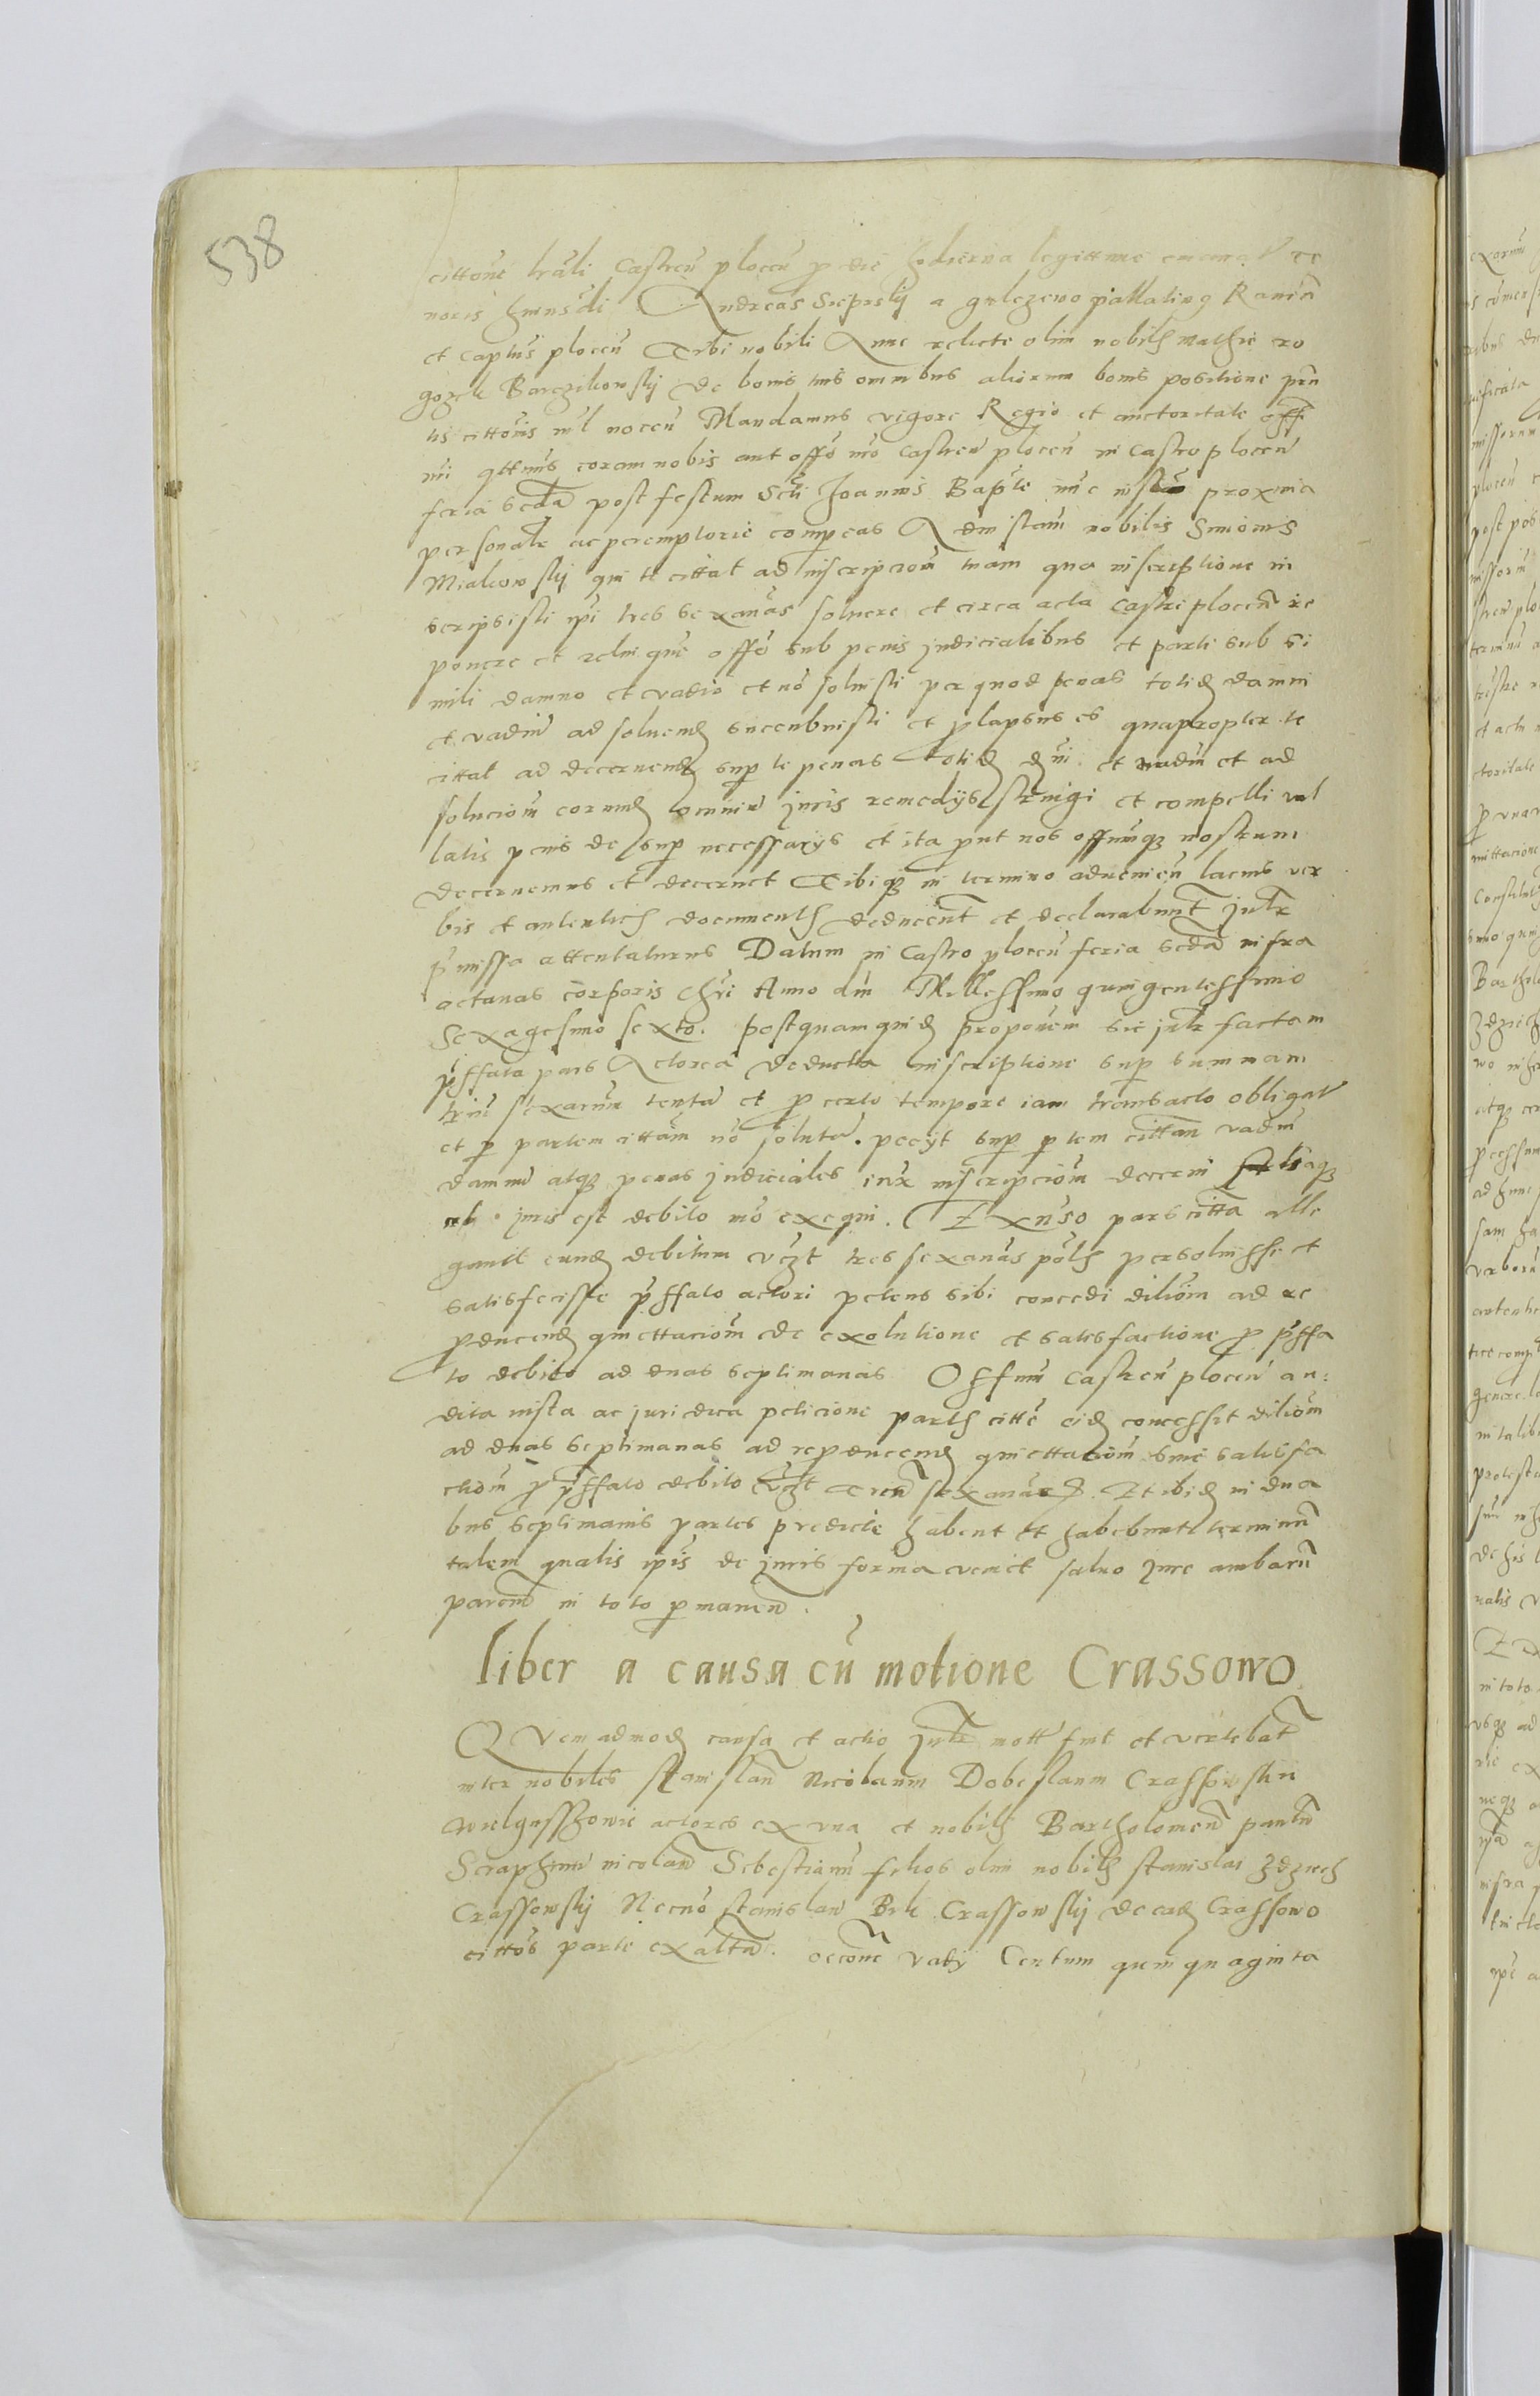 538
cittone lrali Castren plocen p die hodierna legittime emanat te
noris huiusdi Andreas Sieprsky a gulczewo pallatinus Ravien
et Captus plocen Tibi nobili Anne relicte olim nobilis Mathie ro
gozek Barczikowsky de bonis tuis omnibus aliorum bonis positione pntis
tis cittonis nil nocen Mandamus vigore Regio et auctoritate offi
nri qttenus coram nobis aut offo nro Castren plocen in Castro plocen
feria scda post festum Scti Joannis Baptē nūc proxima
personalr ac peremptorie compeas Ad instam nobilis Simonis
Mialkowsky qui te cittat ad inscripcionem tuam qua inscriptione in
scripsisti ipi tres sexanas solvere et circa acta Castri plocen re
ponere et relinque offo sub penis judicialibus et parti sub si
mili damno et vadio et nō solvisti per quod penas totid damni
et vadiu ad solvend succubuisti et plapsus es quapropter te
cittat ad decernend sup te penas totid dni et vadiu et ad
soluciom eorund omniu juris remedijs stringi et compelli val
latis penis de sup necessarijs et ita put nos offmqz nostrum
decernemus et decernet Tibiqz in termino advenien lacius ver
bis et autenticis documentis deducent et declarabunt judr
pmissa attentaturus Datum in Castro plocen feria scda infra
octavas corporis Chri Anno dni Millessimo quingentessimo
Sexagesimo sexto. postquamquid proponem sic judr factam
pffata pars Actorea deducta inscriptione sup summam
triu sexanaru tenta et p certo tempore iam transacto obligat
et p partem cittam nō soluta. peeijt sup ptem cittam vadiu
damnu atqz penas judiciales iuxr inscripciom decerni
juris est debito mō exequi. Exnso pars citta alle
gavit eund debitum vczt tres sexanas polis persoluisse et
satisfecisse pffato actori petens sibi concedi diliom ad re
pducend quiettaciom de exolutione et satisfactione p pffa
to debito ad duas septimanas Offm Castren plocen au:
dita insta ac juridica peticione partis citte eid concessit diliom
ad duas septimanas ad repducend quiettaciom sive satisfa
ctiom p pffato debito vczt triu sexanar Et ibid in dua
bus septimanis partes predicte habent et habebunt terminu
talem qualis ipis de juris forma veniet salvo jure ambaru
pareni in toto pmanen.
liber a causa cū motione Crassowo
QVemadmod causa et actio judr mott fuit et vertebat
inter nobiles stanislau Nicolaum Dobeslaum Crassowski
Wielgusshowie actores ex una et nobilis Bartholomeu paulu
Seraphinu nicolau Sebestianu filios olim nobilis stanislai Zdzuech
Crassowsky Necnō stanislau Crassowsky de ead Crassowo
cittos parte ex alta. occone vadij Centum quinquaginta